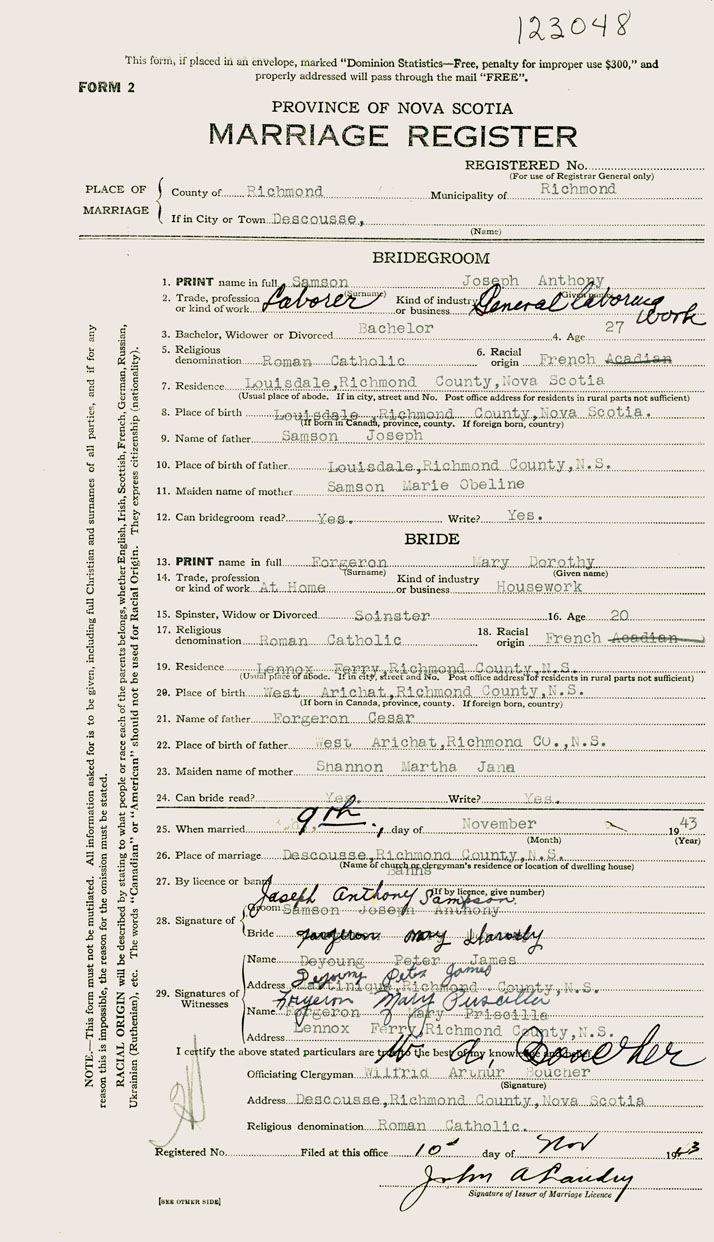 123048
This form, if placed in an envelope, marked "Dominion Statistics—Free, penalty for improper use $300," and
properly addressed will pass through the mail "FREE".
FORM 2
PROVINCE OF NOVA SCOTIA
MARRIAGE REGISTER
REGISTERED No.
(For use of Registrar General only)
PLACE OF MARRIAGE
County of Richmond Municipality of Richmond
If in City or Town Descousse,
(Name)
BRIDEGROOM
1. PRINT name in full Samson Joseph Anthony
(Surname) (Given name)
2. Trade, profession or kind of work Laborer Kind of industry or business General laboring work
3. Bachelor, Widower or Divorced Bachelor 4. Age 27
5. Religious denomination Roman Catholic 6. Racial origin French Acadian
7. Residence Louisdale,Richmond County,Nova Scotia
(Usual place of abode. If in city, street and No. Post office address for residents in rural parts not sufficient)
8. Place of birth Louisdale ,Richmond County,Nova Scotia.
(If born in Canada, province, county. If foreign born, country)
9. Name of father Samson Joseph
10. Place of birth of father Louisdale,Richmond County,N.S.
11. Maiden name of mother Samson Marie Obeline
12. Can bridegroom read? Yes. Write? Yes.
BRIDE
13. PRINT name in full Forgeron Mary Dorothy
(Surname) (Given name)
14. Trade, profession or kind of work At Home Kind of industry or business Housework
15. Spinster, Widow or Divorced Soinster 16. Age 20
17. Religious denomination Roman Catholic 18. Racial origin French Acadian
19. Residence Lennox Ferry,Richmond County,N.S.
(Usual place of abode. If in city, street and No. Post office address for residents in rural parts not sufficient)
20. Place of birth West Arichat,Richmond County,N.S.
(If born in Canada, province, county. If foreign born, country)
21. Name of father Forgeron Cesar
22. Place of birth of father West Arichat,Richmond CO.,N.S.
23. Maiden name of mother Shannon Martha Jane
24. Can bride read? Yes. Write? Yes.
25. When married 9th, day of November 1943
(Month) (Year)
26. Place of marriage Descousse,Richmond County,N.S.
(Name of church or clergyman's residence or location of dwelling house)
27. By licence or banns Banns
(If by licence, give number)
Joseph Anthony Sampson
28. Signature of Groom Samson Joseph Anthony
Bride
29. Signatures of Witnesses
Name Deyoung Peter James
Deyoung Peter James
Address Martinique,Richmond County,N.S.
Forgeron Mary Priscilla
Name Forgeron Mary Priscilla
Address Lennox Ferry,Richmond County,N.S.
I certify the above stated particulars are true to the best of my knowledge and belief.
W. A. Boucher
Officiating Clergyman Wilfrid Arthur Boucher
(Signature)
Address Descousse,Richmond County,Nova Scotia
Religious denomination Roman Catholic.
Registered No. Filed at this office 10th day of Nov 1943
John A Landry
Signature of Issuer of Marriage Licence
[SEE OTHER SIDE]
NOTE.—This form must not be mutilated. All information asked for is to be given, including full Christian and surnames of all parties, and if for any
reason this is impossible, the reason for the omission must be stated.
RACIAL ORIGIN will be described by stating to what people or race each of the parents belongs, whether English, Irish, Scottish, French, German, Russian,
Ukrainian (Ruthenian), etc. The words "Canadian" or "American" should not be used for Racial Origin. They express citizenship (nationality).